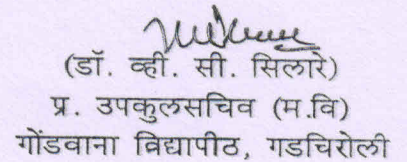 (डॉ. व्ही. सी. सिलारे)
प्र. उपकुलसचिव (म.वि)
गोंडवाना विद्यापीठ, गडचिरोली